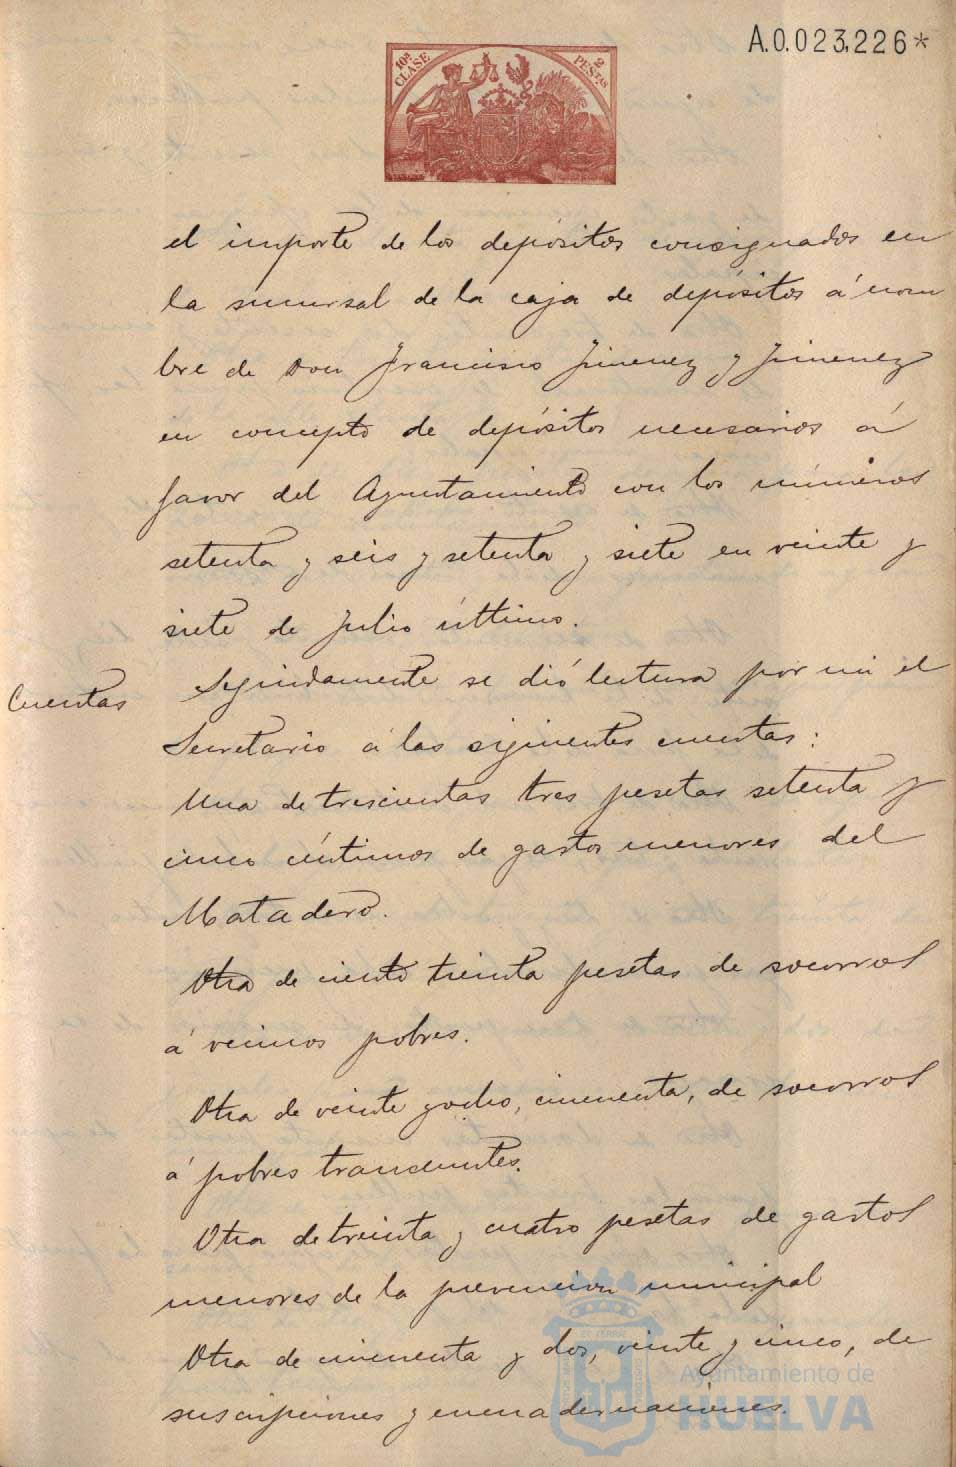 A.0.023,226*
10ª CLASE
2 PESTAS
el importe de los depósitos consignados en
la sucursal de la caja de depósitos á nom
bre de Don Francisco Jimenez y Jimenez
en concepto de depósitos necesarios á
favor del Ayuntamiento con los números
setenta y seis y setenta y siete en veinte y
siete de Julio último.
Cuentas
Seguidamente se dió lectura por mi el
Secretario á las siguientes cuentas:
Una de trescientas tres pesetas setenta y
cinco céntimos de gastos menores del
Matadero.
Otra de ciento treinta pesetas de socorros
á vecinos pobres.
Otra de veinte y ocho, cincuenta, de socorros
á pobres transeuntes.
Otra de treinta y cuatro pesetas de gastos
menores de la prevencion municipal
Otra de cincuenta y dos, veinte y cinco, de
suscripciones y encuadernaciones.
Ayuntamiento de
HUELVA